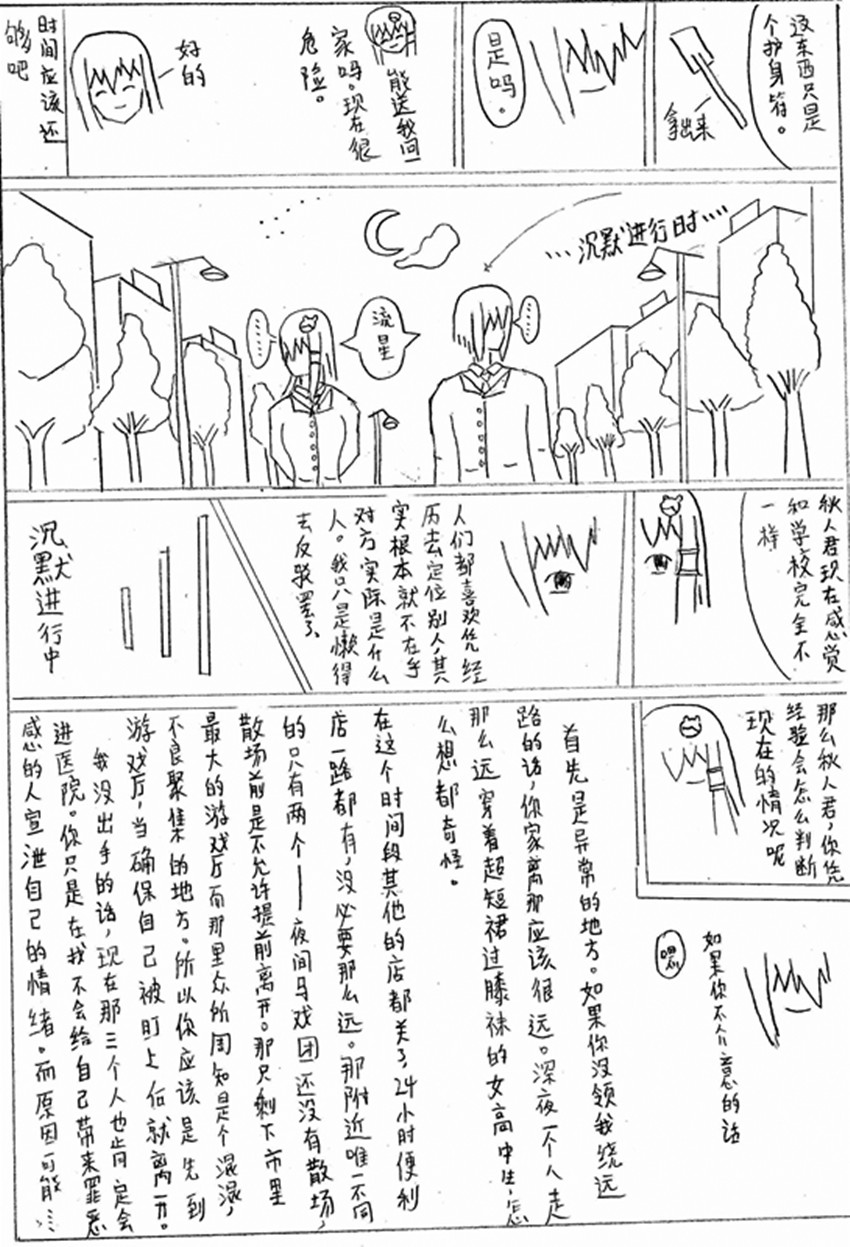 这东西只是
个护身符。
拿出来
是吗。
能送我回
家吗。现在很
危险。
好的
时间应该还
够吧
...沉默进行时....
流星
......
......
秋人君现在感觉
和学校完全不
一样
人们都喜欢凭经
历去定位别人,其
实根本就不在乎
对方实际是什么
人。我只是懒得
去反驳罢了、
沉默进行中
那么秋人君,你凭
经验会怎么判断
现在的情况呢
如果你不介意的话
嗯
首先是异常的地方。如果你没领我绕远
路的话,你家离那应该很远。深夜一个人走
那么远穿着超短裙过膝袜的女高中生,怎
么想都奇怪。
在这个时间段其他的店都关了,24小时便利
店一路都有,没必要那么远。那附近唯一不同
的只有两个——夜间马戏团还没有散场,
散场前是不允许提前离开。那只剩下市里
最大的游戏厅而那里众所周知是个混混,
不良聚集的地方。所以你应该是先到
游戏厅,当确保自己被盯上后就离开。
我没出手的话,现在那三个人也肯定会
进医院。你只是在找不会给自己带来罪恶
感的人宣泄自己的情绪。而原因可能……